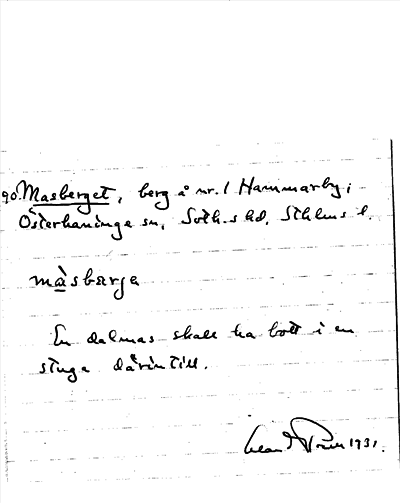 90. Masberget, berg å nr. 1 Hammarby;
Österhaninge sn, Soth.s hd, Sthlms l.
màsbærge
En dalmas skall ha bott i en
stuga därintill.
1931.